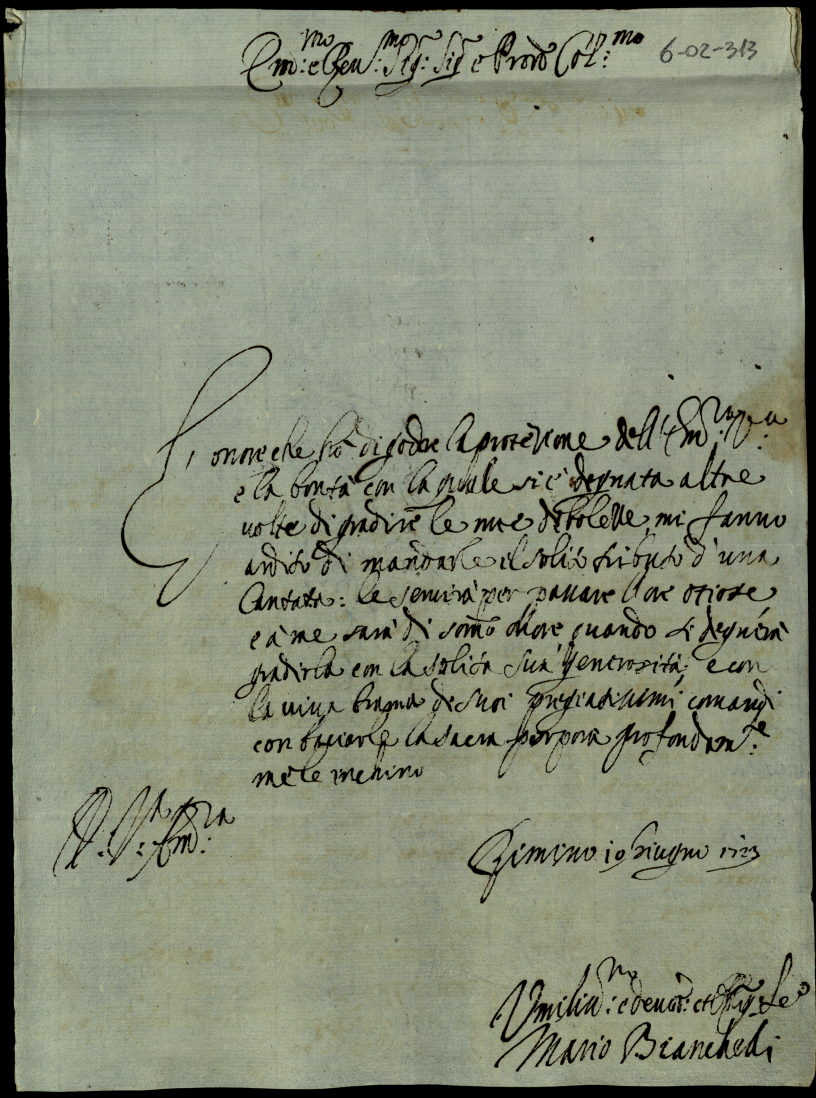 Em:mo e Reu:mo Sig: Sig e Prone Col:mo
6-02-313
L'onore che hò di godere la protezione dell'Em:
e la bontà con la quale si è degnata altre
volte di gradire le mie debolezze, mi fanno
ardito di mandarle il solito tributo d'una
Cantata: le servirà per passare l'ore otiose
e à me sarà di somo onore quando si degnerà
gradirla con la solita sua generosità; e con
la viva brama de suoi pregiatissimi comandi
con baciarle la sacra porpora profondam:te
me le inchino
V: V:a Em:za
Rimino 10 Giugno 1723
Umiliss:mo e deuot: et Oblig Se
Mario Bianchelli